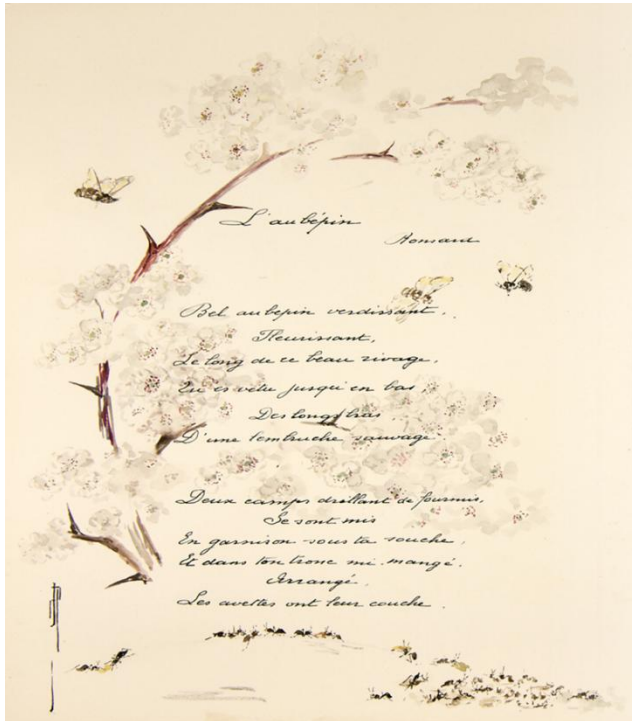 L'aubépin
Ronsard
Bel aubepin verdissant.
Fleurissant,
Le long de ce beau rivage.
Tu es vêtu jusqu'en bas
Des longs bras
D'une lembruche sauvage.
Deux camps drillant de fourmis.
Se sont mis
En garnison sous ta souche.
Et dans ton tronc mi-mangé.
Arrangé.
Les avettes ont leur couche.